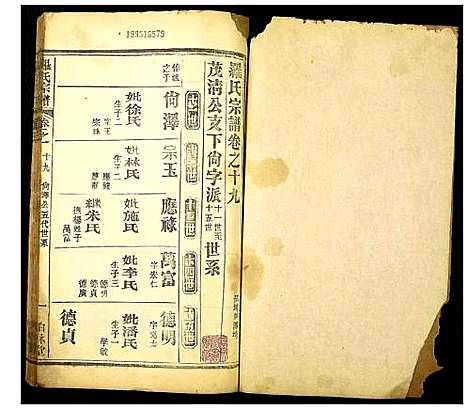 199516579
羅氏宗譜卷之十九
茂清公支下尙字派十一世至十五世世系
十一世
尙澤
妣徐氏
生子二
宗玉
十二世
宗玉
妣林氏
生子二
應祿
十三世
應祿
妣施氏
繼朱氏
撫楊姓子
萬富
十四世
萬富
字宗仁
妣李氏
生子三
德明
德貞
德廣
十五世
德明
妣潘氏
生子一
學敏
德貞
羅氏宗譜
卷之
十九
尙澤公五代世系
一